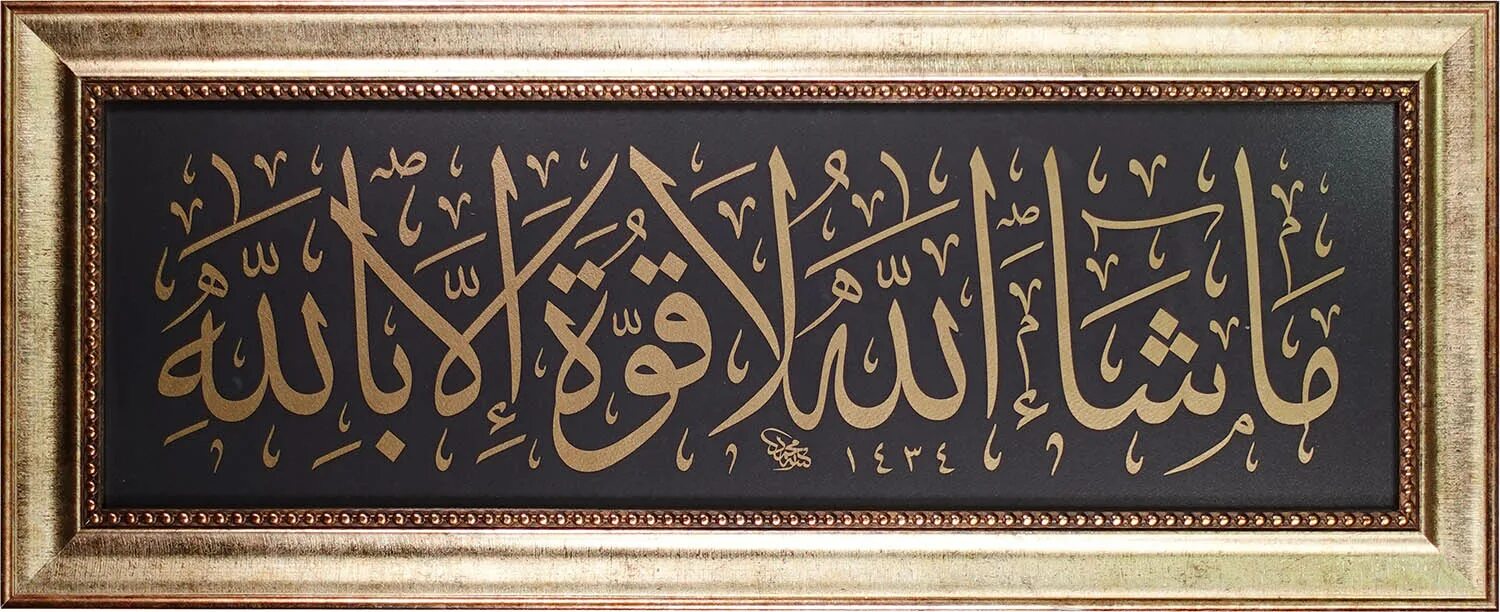 مَا شَاءَ اللّٰهُ لَا قُوَّةَ إِلَّا بِاللّٰهِ
١٤٣٤